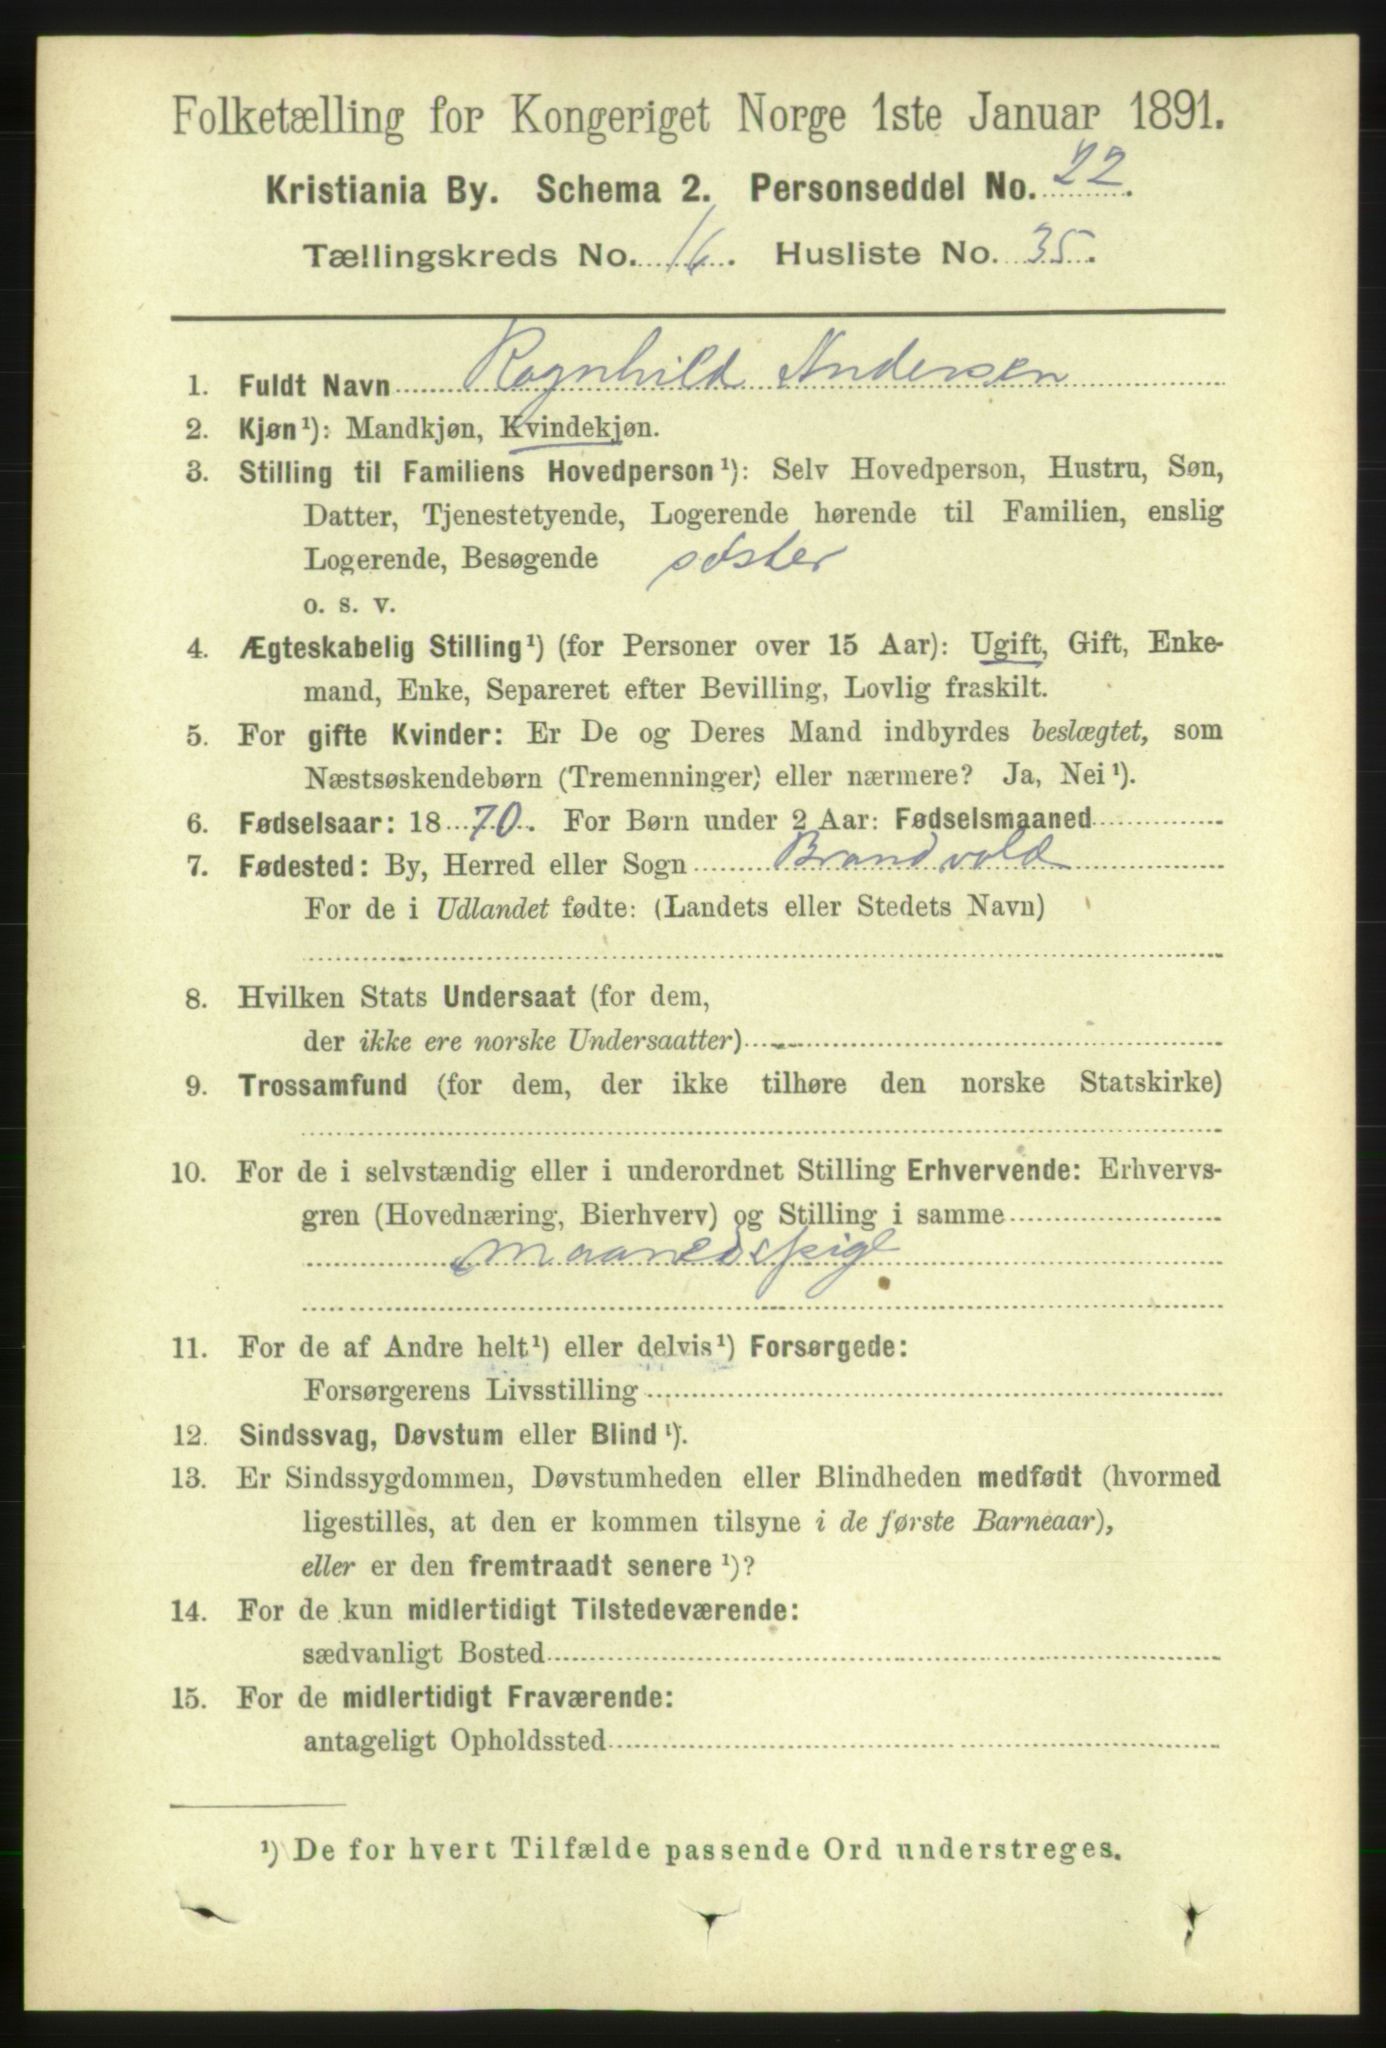 Folketælling for Kongeriget Norge 1ste Januar 1891.
Kristiania By. Schema 2. Personseddel No. 22.
Tællingskreds No. 16. Husliste No. 35.
1. Fuldt Navn Ragnhild Andersen
2. Kjøn¹): Mandkjøn, Kvindekjøn.
3. Stilling til Familiens Hovedperson¹): Selv Hovedperson, Hustru, Søn,
Datter, Tjenestetyende, Logerende hørende til Familien, enslig
Logerende, Besøgende søster
o. s. v.
4. Ægteskabelig Stilling¹) (for Personer over 15 Aar): Ugift, Gift, Enke-
mand, Enke, Separeret efter Bevilling, Lovlig fraskilt.
5. For gifte Kvinder: Er De og Deres Mand indbyrdes beslægtet, som
Næstsøskendebørn (Tremenninger) eller nærmere? Ja, Nei¹).
6. Fødselsaar: 1870. For Børn under 2 Aar: Fødselsmaaned
7. Fødested: By, Herred eller Sogn Brandvold
For de i Udlandet fødte: (Landets eller Stedets Navn)
8. Hvilken Stats Undersaat (for dem,
der ikke ere norske Undersaatter)
9. Trossamfund (for dem, der ikke tilhøre den norske Statskirke)
10. For de i selvstændig eller i underordnet Stilling Erhvervende: Erhvervs-
gren (Hovednæring, Bierhverv) og Stilling i samme
Maanedspige
11. For de af Andre helt¹) eller delvis¹) Forsørgede:
Forsørgerens Livsstilling
12. Sindssvag, Døvstum eller Blind¹).
13. Er Sindssygdommen, Døvstumheden eller Blindheden medfødt (hvormed
ligestilles, at den er kommen tilsyne i de første Barneaar),
eller er den fremtraadt senere¹)?
14. For de kun midlertidigt Tilstedeværende:
sædvanligt Bosted
15. For de midlertidigt Fraværende:
antageligt Opholdssted
¹) De for hvert Tilfælde passende Ord understreges.